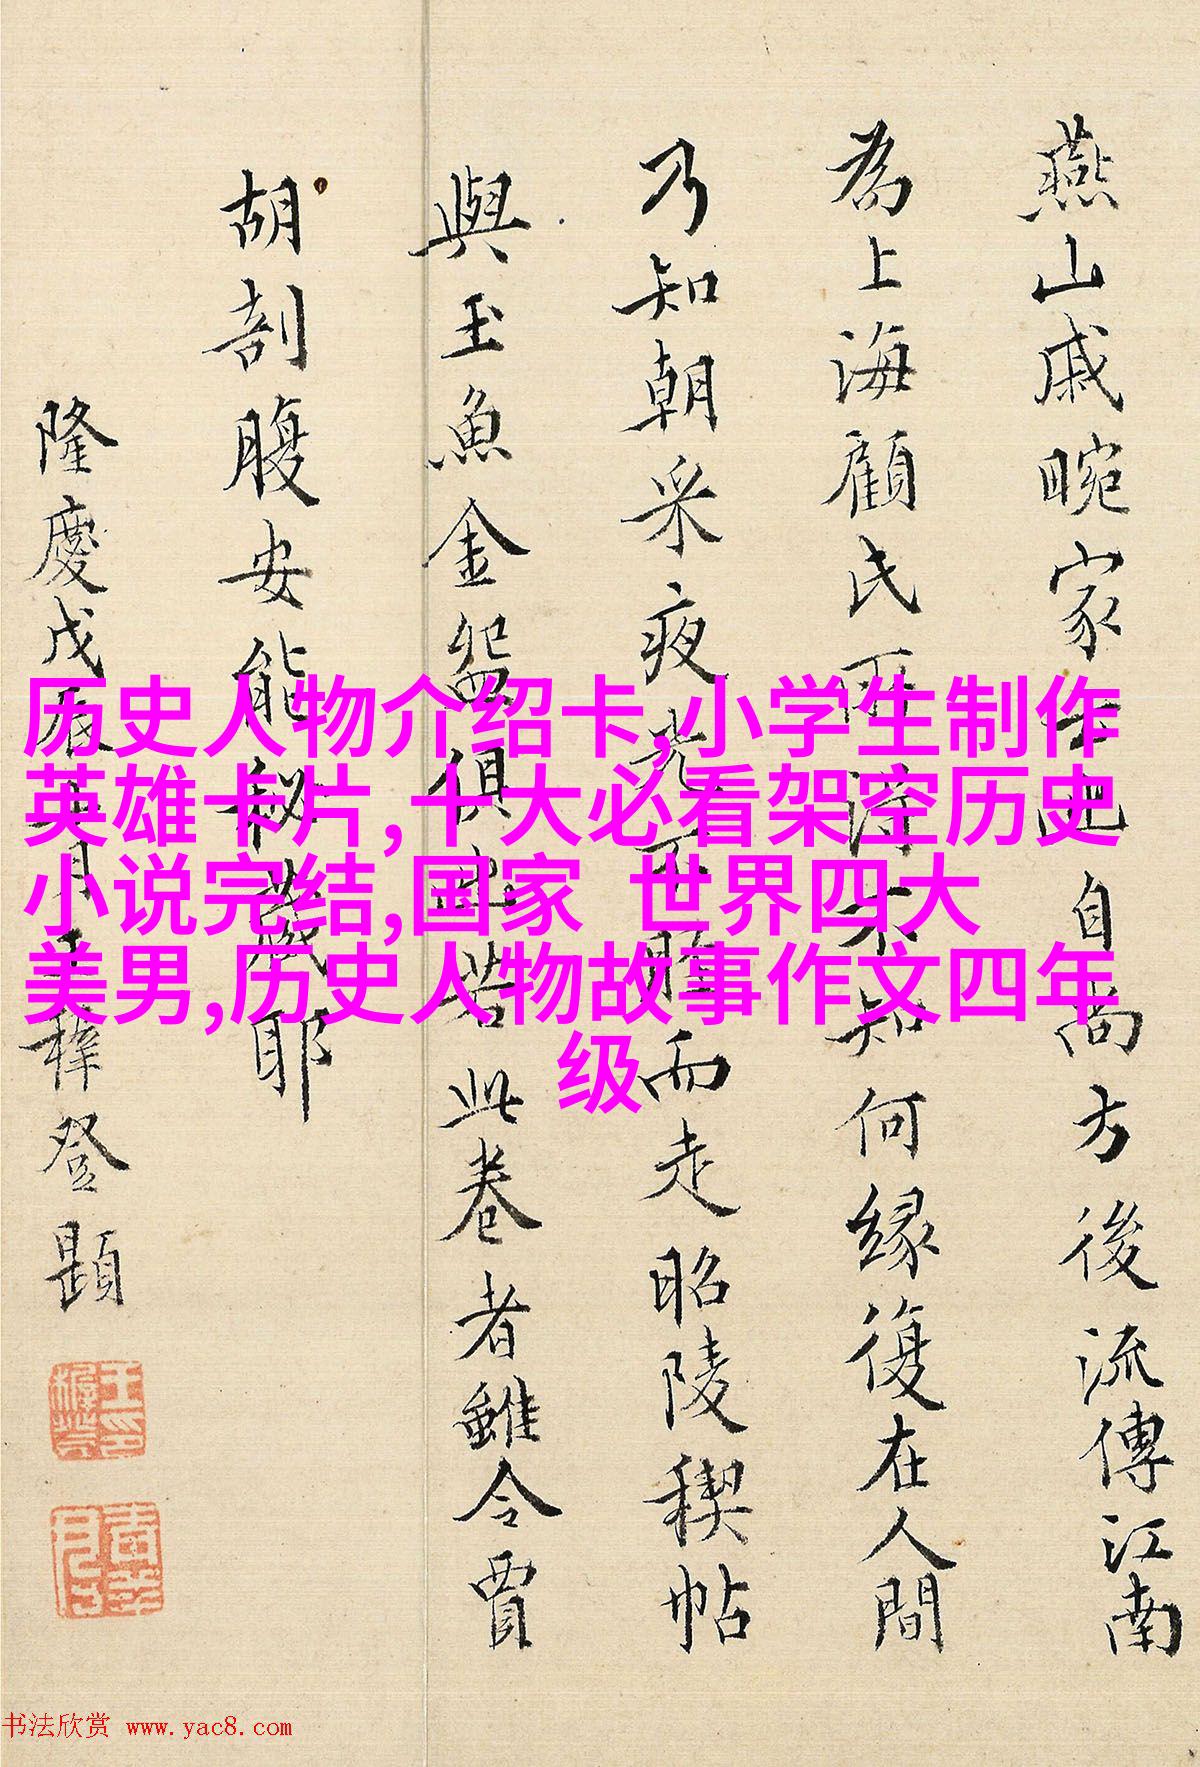 燕山戚畹家古也自尚方後流傳江南
為上海顧氏所淳不知何緣復在人間
乃知朝采夜光不脛而走昭陵稧帖
與玉魚金盌俱出若此卷者雖令賈
胡剖腹安能秘藏耶
隆慶戊辰七月王穉登題
历史人物介绍卡,小学生制作
英雄卡片,十大必看架空历史
小说完结,国家 世界四大
美男,历史人物故事作文四年
级
书法欣赏 www.yac8.com